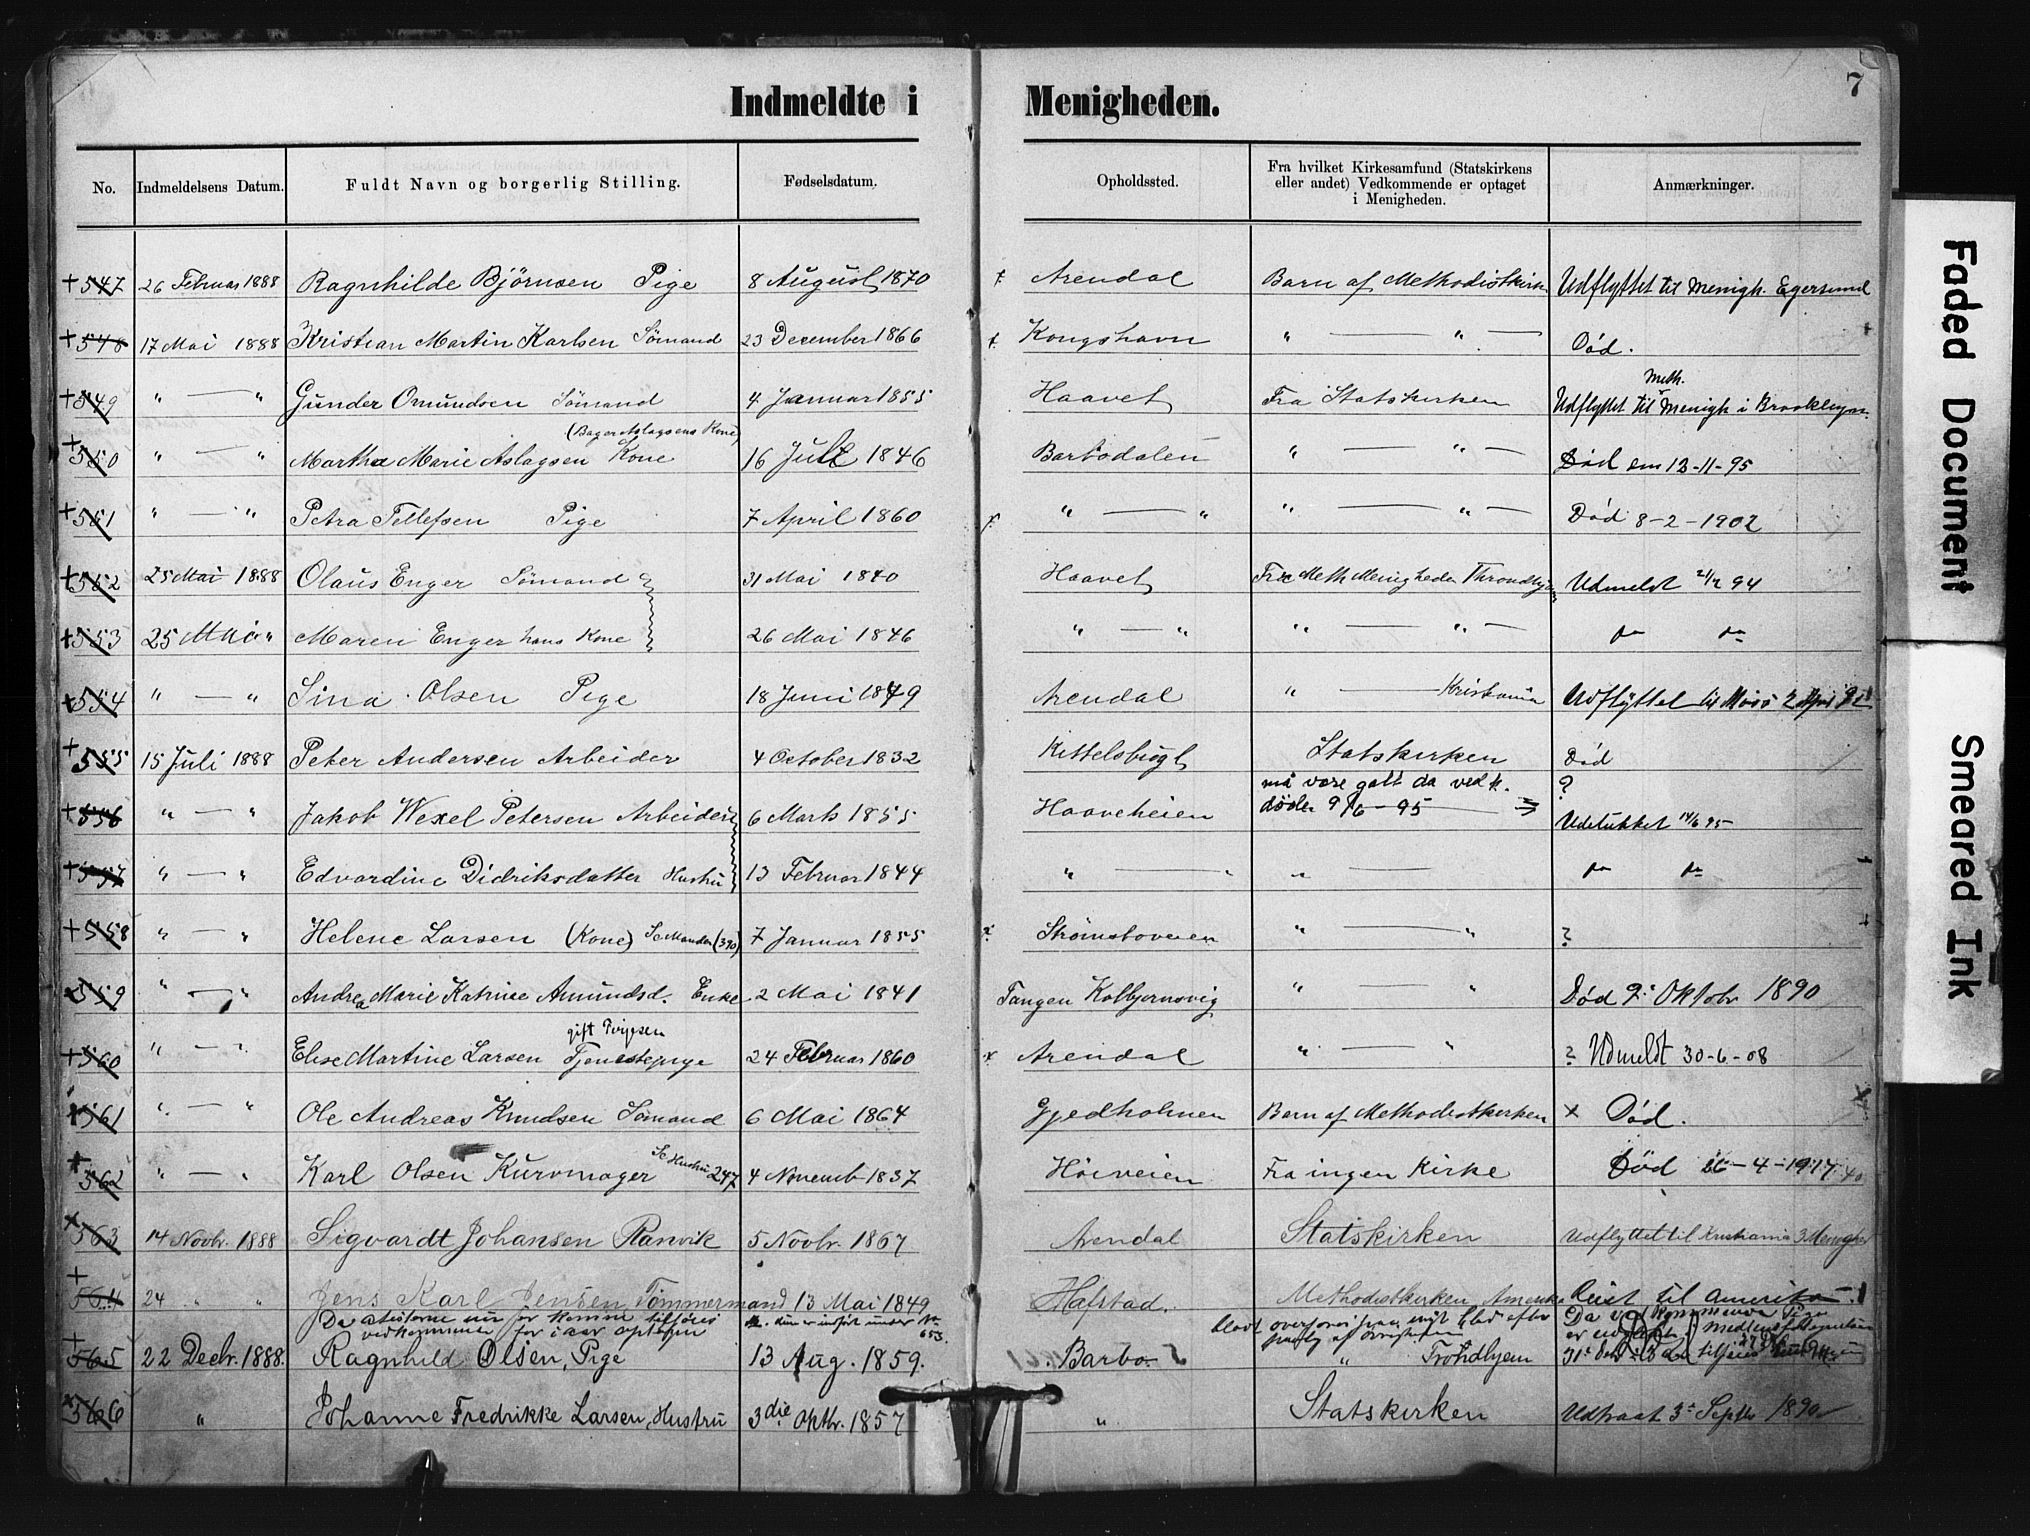 7
Indmeldte i Menigheden.
No. Indmeldelsens Datum. Fuldt Navn og borgerlig Stilling. Fødselsdatum. Opholdssted. Fra hvilket Kirkesamfund (Statskirkens eller andet) Vedkommende er optaget i Menigheden. Anmærkninger.
+ 547 26 Februar 1888 Ragnhilde Bjørnsen Pige 8 August 1870 Arendal Barn af Methodistkirken Udflyttet til Menigh. Egersund
+ 548 17 Mai 1888 Kristian Martin Karlsen Sømand 23 December 1866 Kongshavn " — " — Død.
Meth.
+ 549 " — " Gunder Omundsen Sømand 4 Januar 1855 Haavet Fra Statskirken Udflyttet til Menigh i Brooklyn
(Bager Aslagsens Kone)
+ 550 " — " Martha Marie Aslagsen Kone 16 Juli 1846 Barbodalen " — " — Død em 13-11-95
+ 551 " — " Petra Tellefsen Pige 7 April 1860 " — " " — " — Død 8-2-1902
+ 552 25 Mai 1888 Olaus Enger Sømand 31 Mai 1840 Haavet Fra Meth Menigheden Throndhjem Udmeldt 94
+ 553 25 Mai " Maren Enger hans Kone 26 Mai 1846 " — " " — " —
+ 554 " — " Sina Olsen Pige 18 Juni 1849 Arendal " — Kristiania Udflyttet til Moss 2 April 92
+ 555 15 Juli 1888 Peter Andersen Arbeider 4 October 1832 Kittelsbugt Statskirken Død
må være galt da vedk. ?
døde 9/6-95
+ 556 " — " Jakob Wexel Petersen Arbeider 6 Marts 1855 Haaveheien Udelukket 14/6 95
+ 557 " — " Edvardine Didriksdatter Hustru 13 Februar 1844 " — " " —
+ 558 " — " Helene Larsen (Kone) Se Manden (390) 7 Januar 1855 Strømsboveien " " ?
559 " — " Andrea Marie Katrine Amundsd. Enke 2 Mai 1841 Tangen Kolbjørnsvig " — " Død 9. Oktobr 1890
gift
+ 560 " — " Elise Martine Larsen Tjenestepige 24 Februar 1860 Arendal " — " ? Udmeldt 30-6-08
561 " — " Ole Andreas Knudsen Sømand 6 Mai 1864 Gjedholmen Barn af Methodistkirken x Død.
Se Hustru 247
+ 562 " — " Karl Olsen Kurvmager 4 Novemb 1837 Høiveien Fra ingen Kirke Død 26-4-1917
x 563 14 Novbr. 1888 Sigvardt Johansen Ranvik 5 Novbr. 1867 Arendal Statskirken Udflyttet til Kristiania 3 Menighed
+ 564 24 " " Jens Karl Jensen, Tømmermand 13 Mai 1849 Hafstad. Methodistkirken Amerika Reist til Amerika
653.
+ 565 22 Decbr. 1888. Ragnhild Olsen, Pige 13 Aug. 1859. Barbo " Trondhjem
x 566 " Johanne Fredrikke Larsen, Hustru 3die Oktbr. 1857 " Statskirken Udtraat 3. Septbr 1890
Faded Document
Smeared Ink